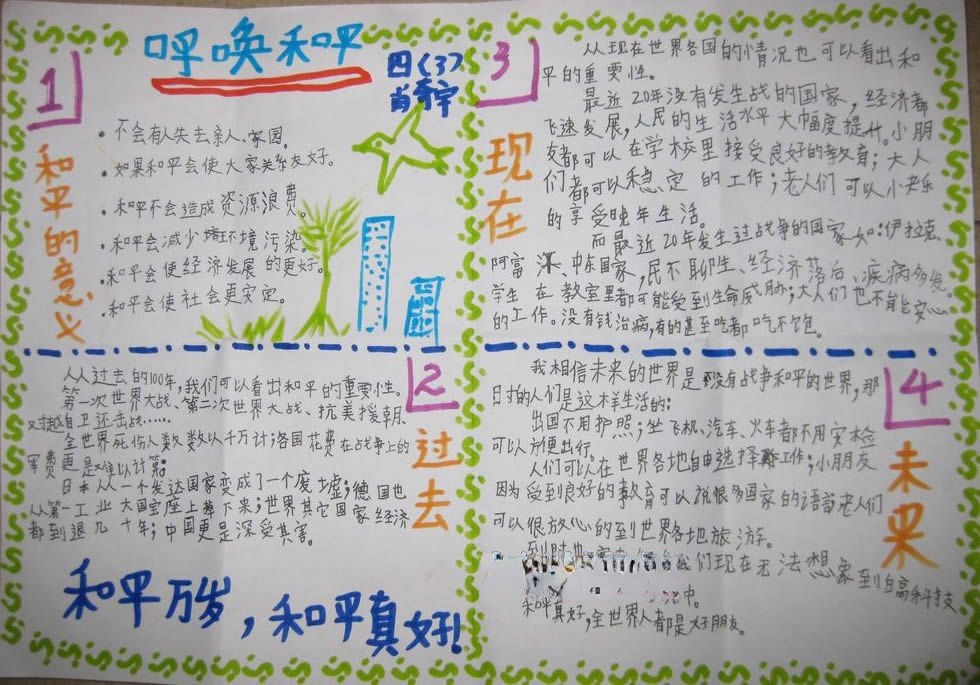 呼唤和平
四(3)
肖奇宇
1
和平的意义
·不会有人失去亲人、家园。
·如果和平会使大家关系友好。
·和平不会造成资源浪费。
·和平会减少环境污染。
·和平会使经济发展的更好。
·和平会使社会更安定。
2
过去
从人过去的100年,我们可以看出和平的重要性。
第一次世界大战、第二次世界大战、抗美援朝、
对越自卫还击战……
全世界死伤人数数以千万计;各国花费在战争上的
军费更是难以计算。
日本从一个发达国家变成了一个废墟;德国也
从第一工业大国宝座上摔下来;世界其它国家经济
都到退几十年;中国更是深受其害。
和平万岁,和平真好!
3
现在
从现在世界各国的情况也可以看出和
平的重要性。
最近20年没有发生战的国家,经济都
飞速发展,人民的生活水平大幅度提什。小朋
友都可以在学校里接受良好的教育;大人
们都可以稳定的工作;老人们可以小央乐
的享受晚年生活。
而最近20年发生过战争的国家如:伊拉克、
阿富汗、中东国家,民不聊生、经济落后、疾病多发。
学生在教室里都可能受到生命威胁;大人们也不能安心
的工作。没有钱治病,有的甚至吃都吃不饱。
4
未来
我相信未来的世界是没有战争和平的世界,那
日寸的人们是这样生活的:
出国不用护照;坐飞机、汽车、火车都不用安检
可以方便出行。
人们可以在世界各地自由选择工作;小朋友
因为受到良好的教育可以说很多国家的语言老人们
可以很放心的到世界各地旅游。
到时
们现在无法想象到白高科技
中。
和平真好,全世界人都是好朋友。